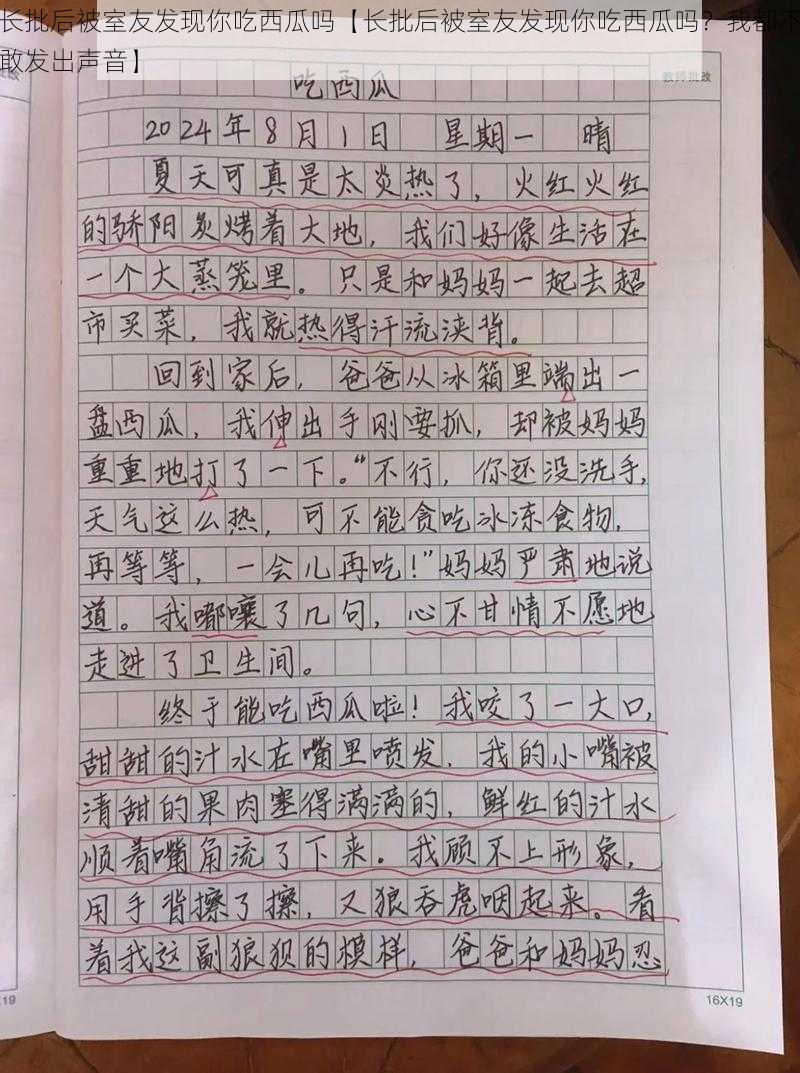 长批后被室友发现你吃西瓜吗【长批后被室友发现你吃西瓜吗？我都不
敢发出声音】
教师批改
吃西瓜
2024年8月1日 星期一 晴
夏天可真是太炎热了，火红火红
的骄阳炙烤着大地，我们好像生活在
一个大蒸笼里。只是和妈妈一起去超
市买菜，我就热得汗流浃背。
回到家后，爸爸从冰箱里端出一
盘西瓜，我伸出手刚要抓，却被妈妈
重重地打了一下。“不行，你还没洗手，
天气这么热，可不能贪吃冰冻食物，
再等等，一会儿再吃！”妈妈严肃地说
道。我嘟囔了几句，心不甘情不愿地
走进了卫生间。
终于能吃西瓜啦！我咬了一大口，
甜甜的汁水在嘴里喷发，我的小嘴被
清甜的果肉塞得满满的，鲜红的汁水
顺着嘴角流了下来。我顾不上形象，
用手背擦了擦，又狼吞虎咽起来。看
着我这副狼狈的模样，爸爸和妈妈忍
16X19